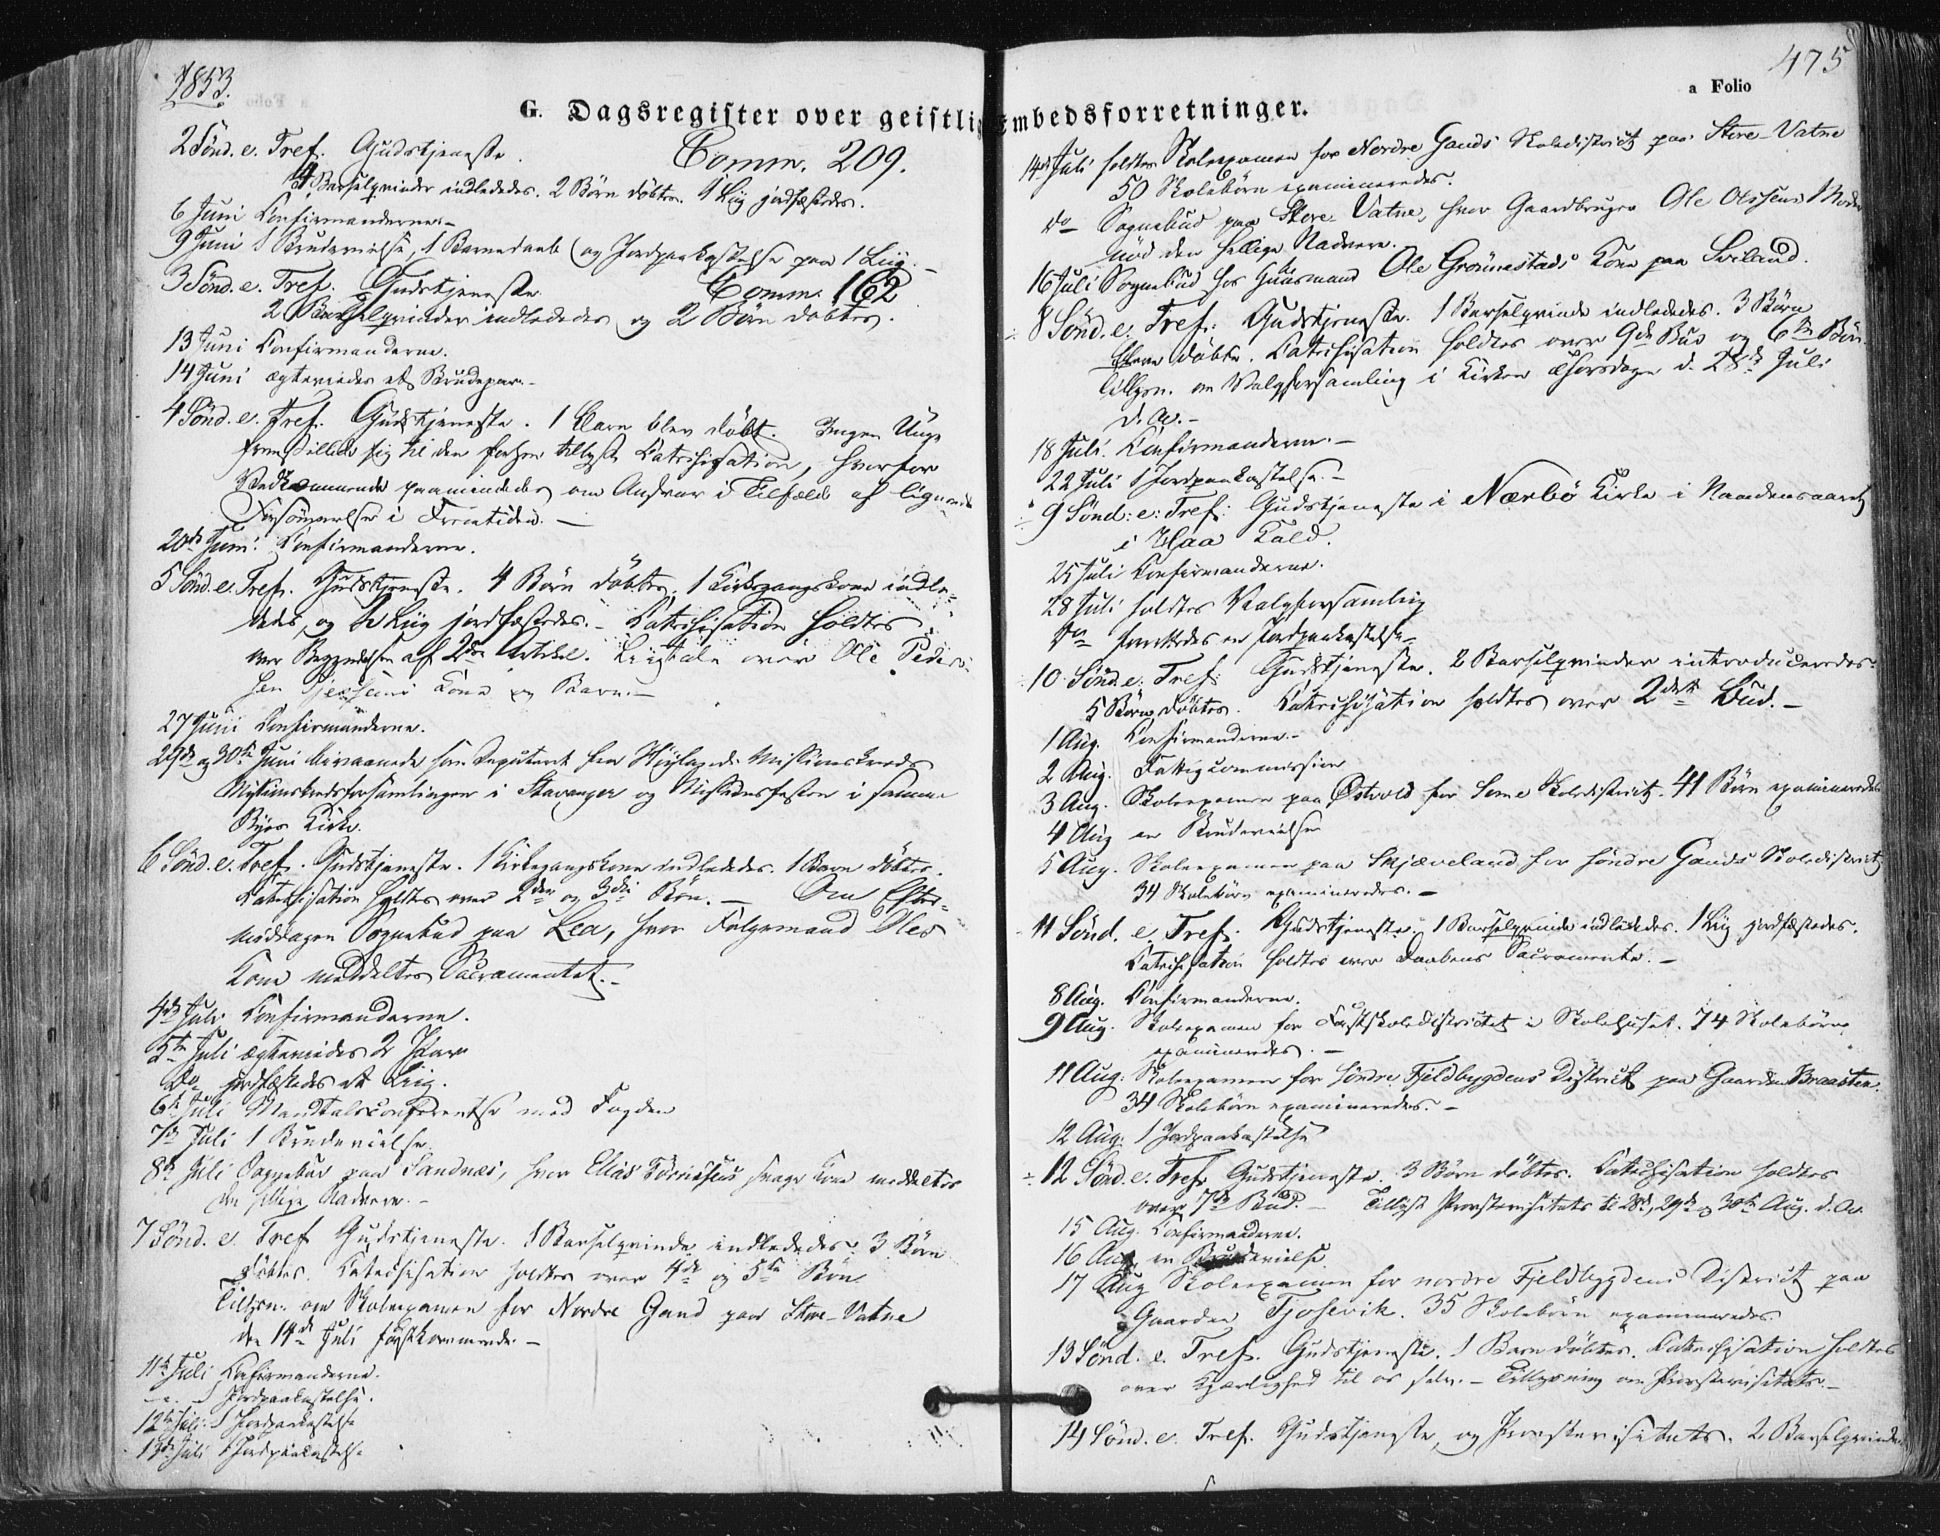 1853.
475
a Folio
G. Dagsregister over geistlige Embedsforretninger.
2 Sönd. e. Tref. Gudstjeneste. Comm. 209.
4 Barselqvinder indlededes. 2 Börn döbtes. 1 Liig jordfæstedes.
6 Juni Confirmanderne.-
9 Juni 1 Brudevielse, 1 Barnedaab og Jordpaakastelse paa 1 Liig.-
3 Sönd. e. Tref. Gudstjeneste. Comm. 162
2 Barselqvinder indlededes og 2 Börn döbtes.
13 Juni Confirmanderne.
14 Juni ægteviedes et Brudepar.-
4 Sönd. e. Tref. Gudstjeneste. 1 Barn blev döbt. Ingen Unge
fremstillede sig til den forhen tillyste Catechisation, hvorfor
Vedkommende paamindedes om Ansvar i Tilfælde af lignende
Forsömmelse i Fremtiden.-
20de Juni: Confirmanderne.
5 Sönd. e. Tref. Gudstjeneste. 4 Börn döbtes. 1 Kirkegangskone indle-
dedes, og 2 Liig jordfæstedes.- Catechisation holdtes
over Begyndelsen af 2den Artikel. Liigtale over Ole Peder-
sen Kone og Barn.-
27 Juni Confirmanderne.
29de og 30te Juni bivaanede som Deputeret fra Höylands Missionskreds
Missionskredsforsamlingen i Stavanger og Missionsfesten i samme
Byes Kirke.
6 Sönd. e. Tref. Gudstjeneste. 1 Kirkegangskone indlededes. 1 Barn döbtes.
Catechisation holdtes over 2den og 3die Bön.- Om Efter-
middagen Sognebud paa Lea, hvor Fölgemand Oles
Kone meddeltes Sacramentet.-
4de Juli Confirmanderne.
5te Juli ægteviedes 2 Par
do jordfæstedes et Liig.
6te Juli Mandtalsconferentse med Fogden
7de Juli 1 Brudevielse.
8de Juli Sognebud paa Sandnæs, hvor Elias svage Kone meddeltes
den hellige Nadvere.-
7 Sönd. e. Tref Gudstjeneste. 1 Barselqvinde indlededes. 3 Börn
döbtes. Catechisation holdtes over 4de og 5te Bön
Tillysn. om Skoleexamen for Nordre Gand paa Store-Vatne
den 14de Juli förstkommende.-
11te Juli Confirmanderne.
1 Jordpaakastelse.
12te Juli 1 Jordpaakastelse
13de Juli 1 Jordpaakastelse
14de Juli holdtes Skoleexamen for Nordre Gands Skoledistrict paa Store-Vatne
50 Skolebörn examineredes.
do Sognebud paa Store Vatne, hvor Gaardbruger Ole Olssens Moder
nöd den hellige Nadvere.
16 Juli Sognebud hos Huusmand Ole Grönnestads Kone paa Sviland.
÷ 8 Sönd. e. Tref: Gudstjeneste. 1 Barselqvinde indlededes. 3 Börn
döbte. Catechisation holdtes over 9de Bud og 6te Bön.
Tillysn. om Valgforsamling i Kirken Thorsdagen d. 28de Juli
d. A.-
18 Juli. Confirmanderne.-
22 Juli 1 Jordpaakastelse.-
÷ 9 Sönd: e: Tref: Gudstjeneste i Nærbö Kirke i Naadensaaret
i Haa Kald.
25 Juli Confirmanderne.
28 Juli holdtes Valgforsamling
do forrettedes en Jordpaakastelse.
10 Sönd. e. Tref: Gudstjeneste. 2 Barselqvinder introduceredes.
5 Börn döbtes. Catechisation holdtes over 2det Bud.-
1 Aug. Confirmanderne.-
2 Aug. Fattigcommission
3 Aug. Skoleexamen paa Østvold for Some Skoledistrict. 41 Börn examineredes
4 Aug en Brudevielse
5 Aug. Skoleexamen paa Skjæveland for söndre Gands Skoledistrict
34 Skolebörn examineredes.-
11 Sönd. e. Tref. Gudstjeneste. 1 Barselqvinde indlededes. 1 Liig jordfæstedes.
Catechisation holdtes over Daabens Sacramente.-
8 Aug. Confirmanderne.
9 Aug. Skoleexamen for Fastskoledistrictet i Skolehuset. 74 Skolebörn
examineredes.-
11 Aug: Skoleexamen for Söndre Fjeldbygdens District paa Gaarden Braasten.
34 Skolebörn examineredes.-
12 Aug. 1 Jordpaakastelse
÷ 12 Sönd. e. Tref. Gudstjeneste. 3 Börn döbtes. Catechisation holdtes
over 7de Bud.- Tillyst Provstevisitats til 28de, 29de og 30te Aug. d. A.
15 Aug. Confirmanderne.
16 Aug en Brudevielse.
17 Aug Skoleexamen for nordre Fjeldbygdens District paa
Gaarden Tjosevik. 35 Skolebörn examineredes
13 Sönd. e. Tref. Gudstjeneste. 1 Barn döbtes. Catechisation holdtes
over Kjærlighed til os selv.- Tillysning om Provstevisitats.-
14 Sönd. e. Tref. Gudstjeneste, og Provstevisitats. 2 Barselqvinder